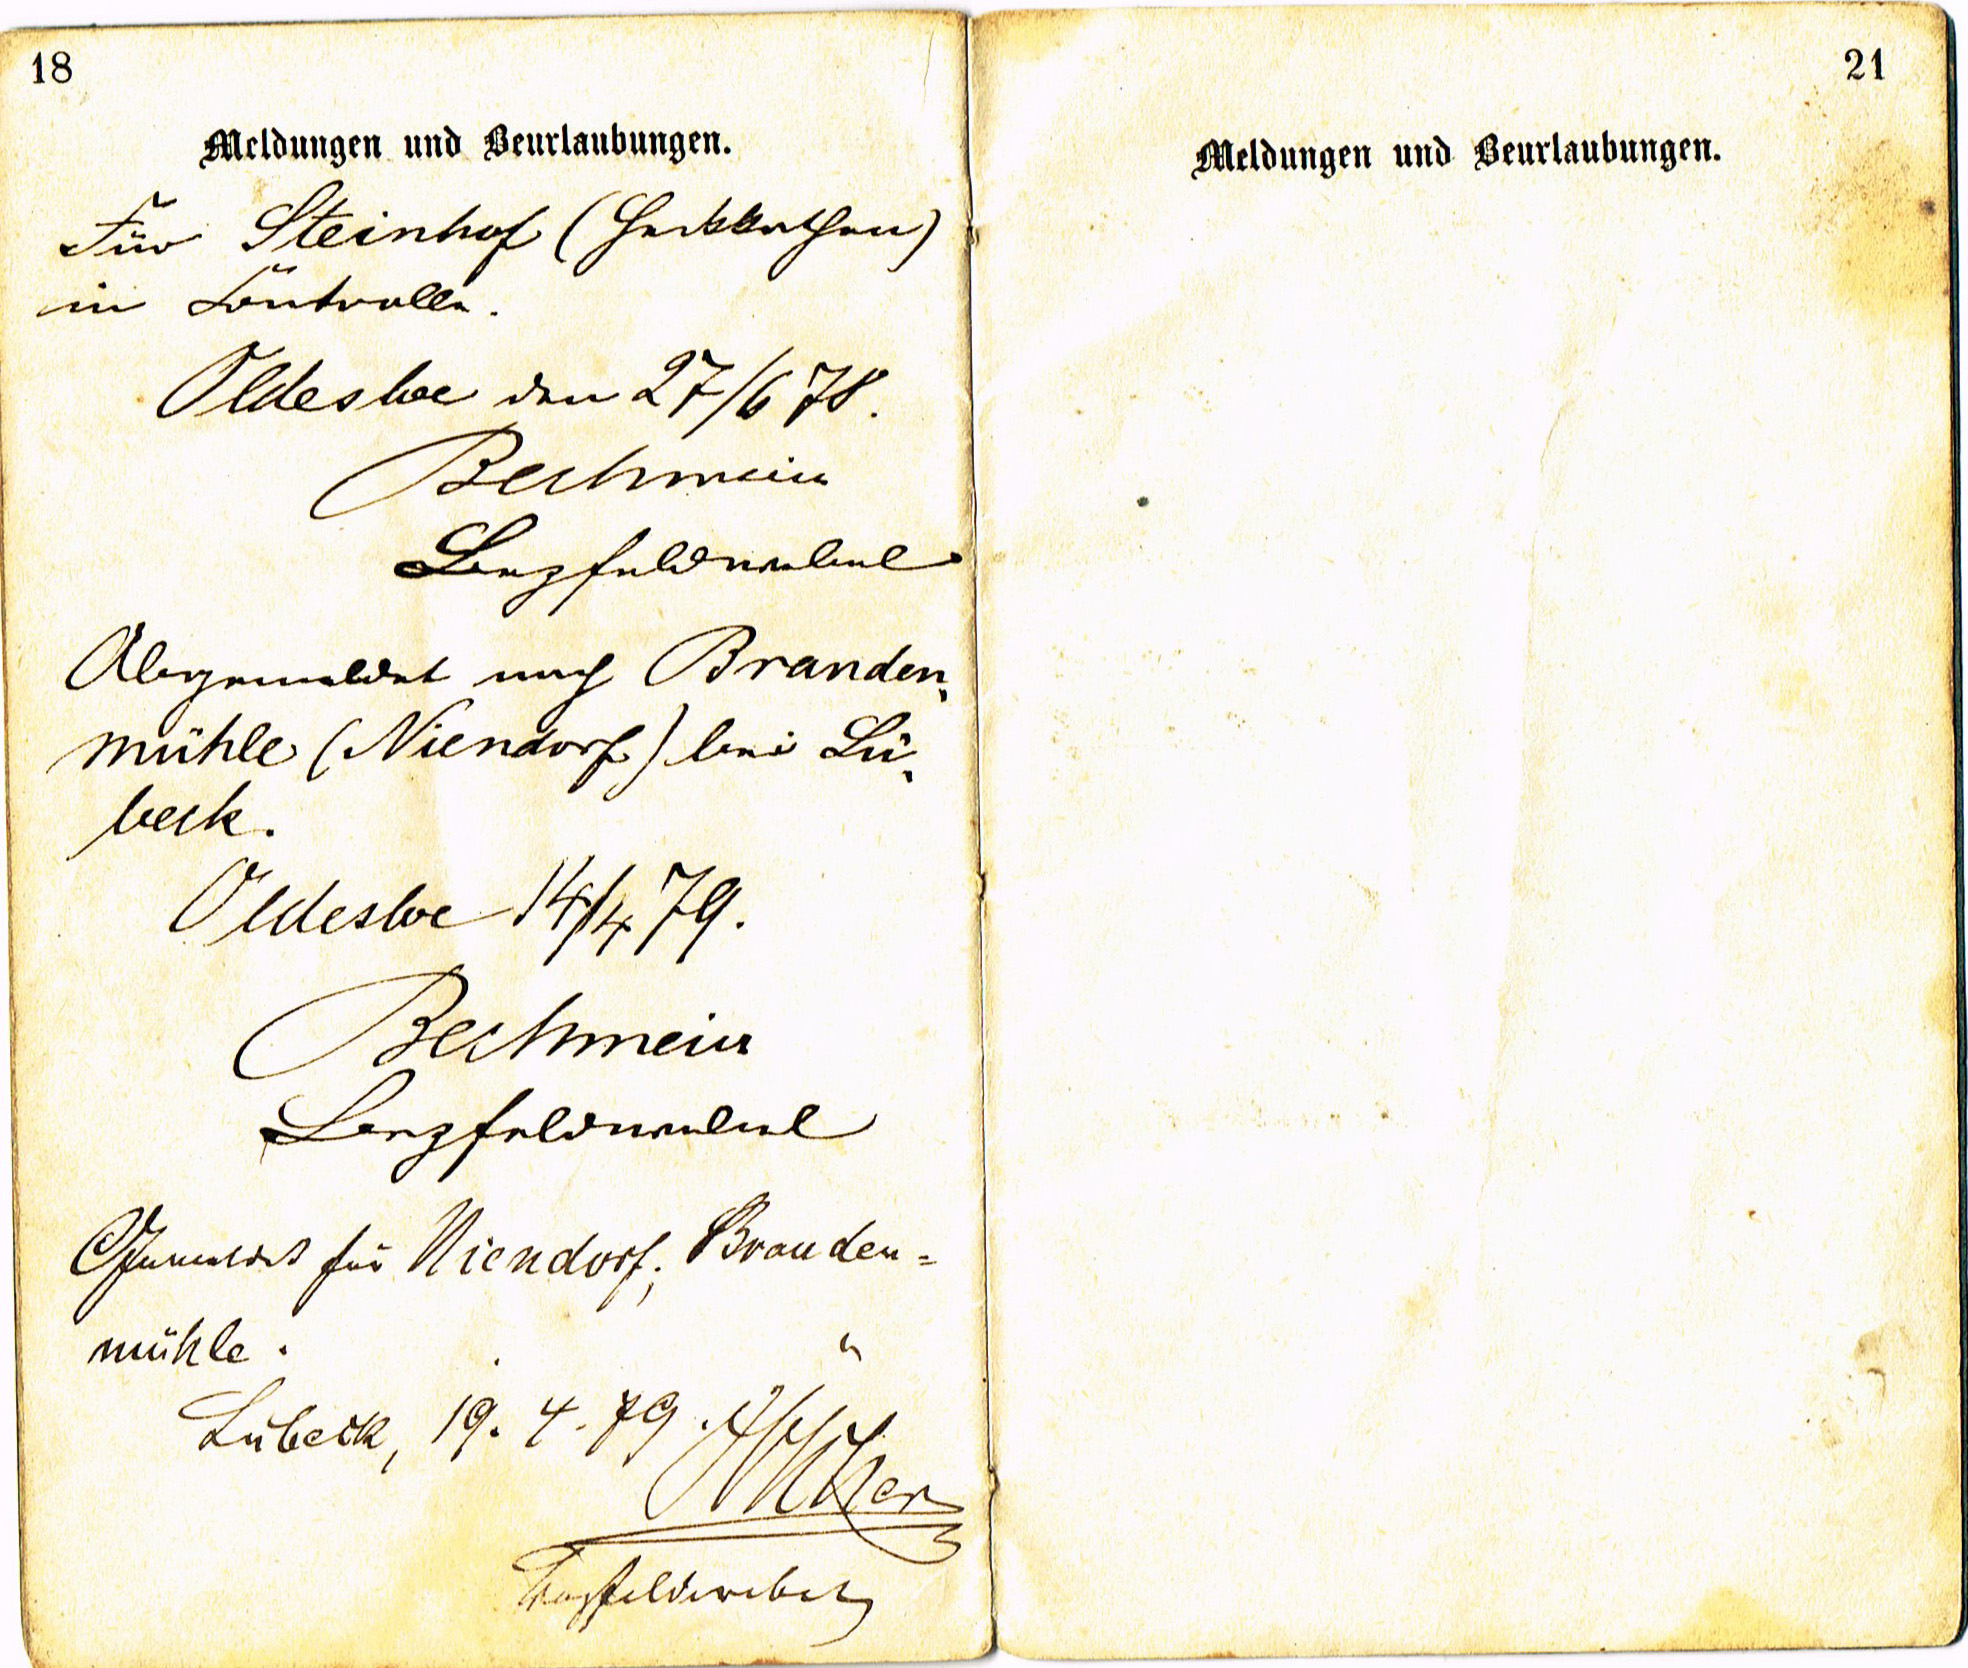 18
Meldungen und Beurlaubungen.
Für Steinhof (Heckkathen)
in Controlle.
Oldesloe den 27/6 78.
Bechmein
Bezfeldwebel
Abgemeldet nach Branden-
mühle (Niendorf) bei Lü-
beck.
Oldesloe 14/4 79.
Bechmein
Bezfeldwebel
Gemeldet für Niendorf, Branden=
mühle.
Lübeck, 19. 4. 79.
Bezfeldwebel
21
Meldungen und Beurlaubungen.